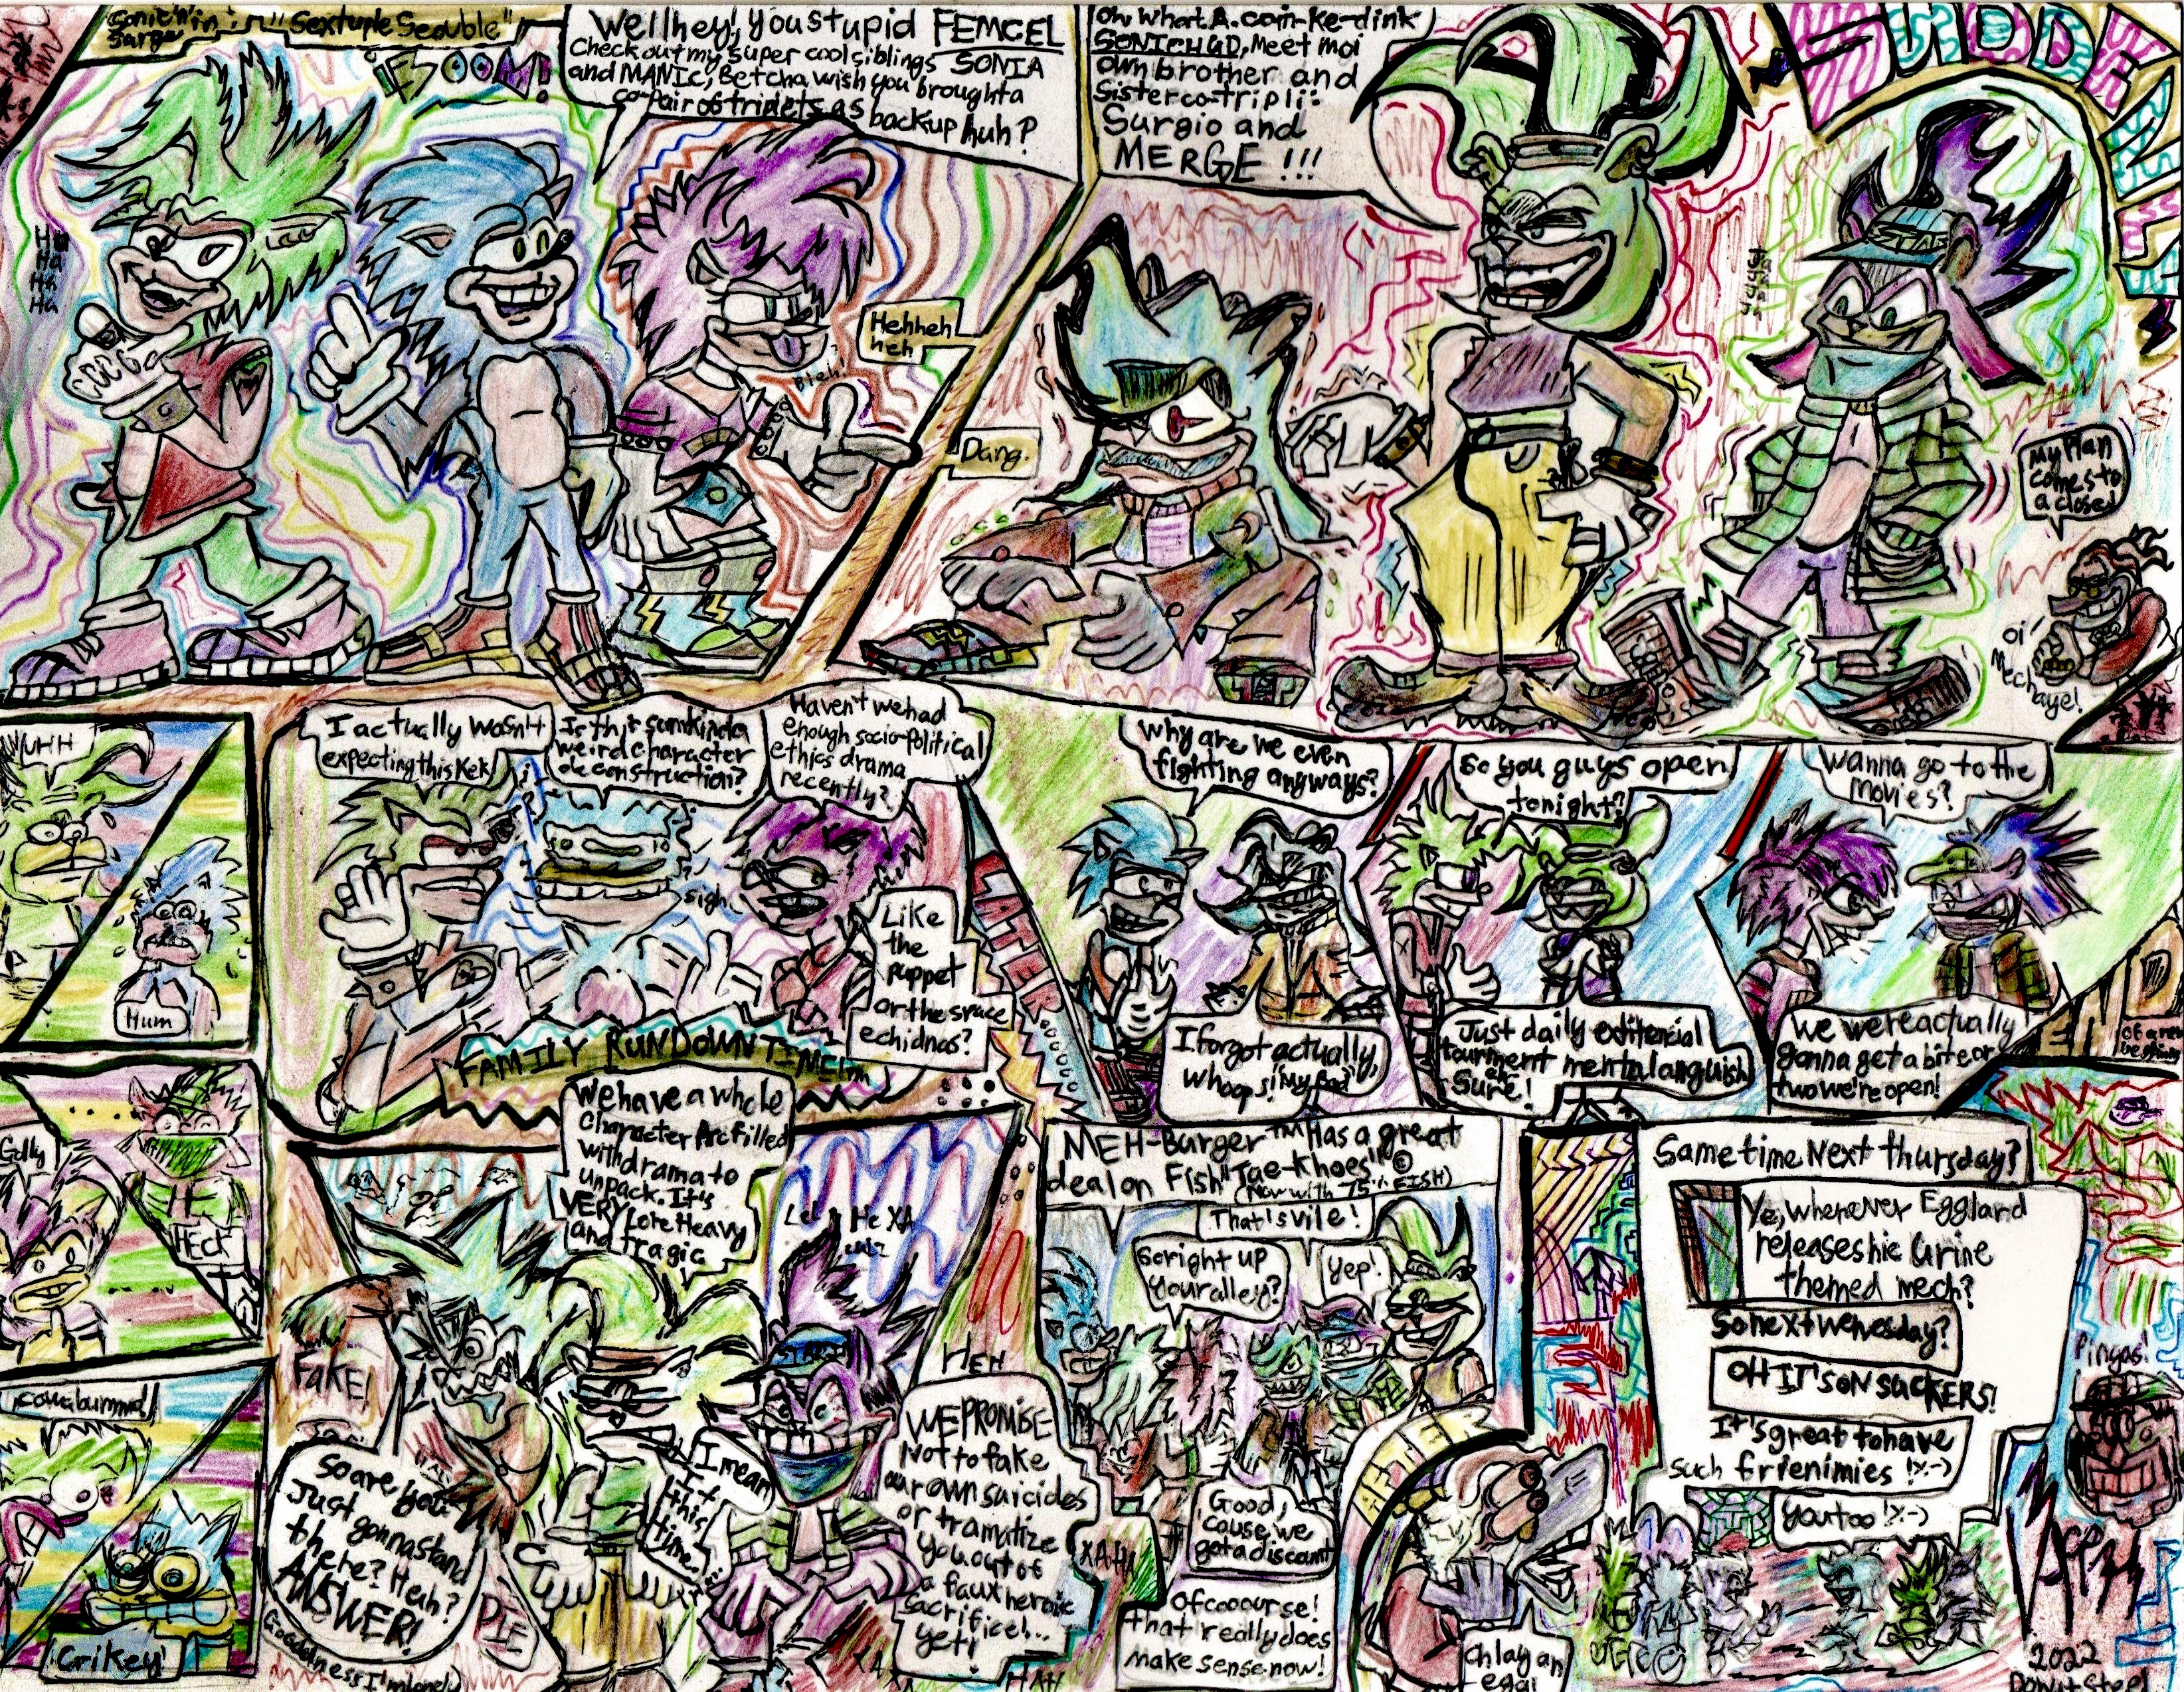 Sonic'n'in:
Surge
"Sextuple Seouble"
BOOM!
Well hey, you stupid FEMCEL
Check out my super cool siblings SONIA
and MANIC, Betcha wish you brought a
co-pair of triplets as backup huh?
Ha
Ha
Ha
Ha
Bleh!
Heh heh
heh
Oh, what. A. coin-ke-dink
SONICHUD, Meet moi
own brother and
sister co-tripli:
Surgio and
MERGE!!!
Dang.
STAR
SUDDENLY
My Plan
comes to
a closed
oi!
Mechaye!
UHH
Hum
Golly
HECK
cowabummal
Crikey!
I actually wasn't
expecting this Kek
Is this sum kinda
weird character
deconstruction?
Haven't we had
enough socio-political
ethics drama
recently?
sigh.
Like
the
puppet
or the space
echidnas?
FAMILY RUNDOWN TIME!
LATER
Why are we even
fighting anyways?
I forgot actually,
whoops! "My Bad"
So you guys open
tonight?
Just daily editorial
tourment mental anguish
Sure!
Wanna go to the
movies?
We were actually
gonna get a bite or
two we're open!
We have a whole
Character Arc filled
with drama to
unpack. It's
VERY Lore Heavy
and Tragic
FAKE!
So are you
Just gonna stand
there? Heh?
ANSWER!
DIE
Goodness I'm lonely
I mean
it
this
time!
HEH
WE PROMISE
Not to fake
our own suicides
or tramatize
you out of
a faux heroic
sacrifice!...
yet!
XAHA
HAH
MEH-Burger™ Has a great
deal on Fish "Tae-Khoes" ©
(Now with 75% FISH)
That's vile!
So right up
your alley?
Yep!
Good,
'cause we
got a discount
Of coocourse!
that really does
make sense now!
ch lay an
egg!
Same time Next thursday?
Ye, whenever Eggland
releases hic Urine
themed mech?
So next wenesday?
OH IT'S ON SUCKERS!
It's great to have
such frienimies !X-)
You too !X-)
Pingas!
2022